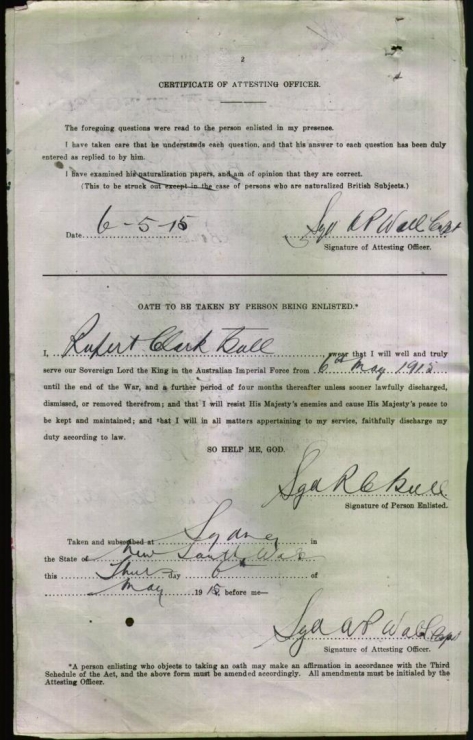 2
CERTIFICATE OF ATTESTING OFFICER.
The foregoing questions were read to the person enlisted in my presence.
I have taken care that he understands each question, and that his answer to each question has been duly
entered as replied to by him.
I have examined his naturalization papers, and am of opinion that they are correct.
(This to be struck out except in the case of persons who are naturalized British Subjects.)
Date 6-5-15 Sgd A P Wall Capt
Signature of Attesting Officer.
OATH TO BE TAKEN BY PERSON BEING ENLISTED.*
I, Rupert Clark Bull swear that I will well and truly
serve our Sovereign Lord the King in the Australian Imperial Force from 6th May 1915
until the end of the War, and a further period of four months thereafter unless sooner lawfully discharged,
dismissed, or removed therefrom; and that I will resist His Majesty's enemies and cause His Majesty's peace to
be kept and maintained; and that I will in all matters appertaining to my service, faithfully discharge my
duty according to law.
SO HELP ME, GOD.
Sgd R C Bull
Signature of Person Enlisted.
Taken and subscribed at Sydney in
the State of New South Wales
this Thur day of
May 1915, before me—
Sgd A P Wall Capt
Signature of Attesting Officer.
*A person enlisting who objects to taking an oath may make an affirmation in accordance with the Third
Schedule of the Act, and the above form must be amended accordingly. All amendments must be initialed by the
Attesting Officer.